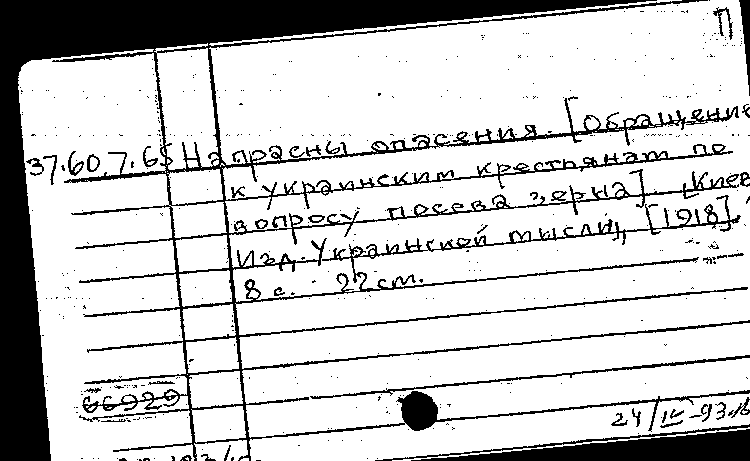 П
37.60.7.65 Напрасны опасения. [Обращение
к украинским крестьянам по
вопросу посева зерна]. [Киев
Изд. Украинской мысли, [1918].
8 с. 22 см.
66929
24/IV-93